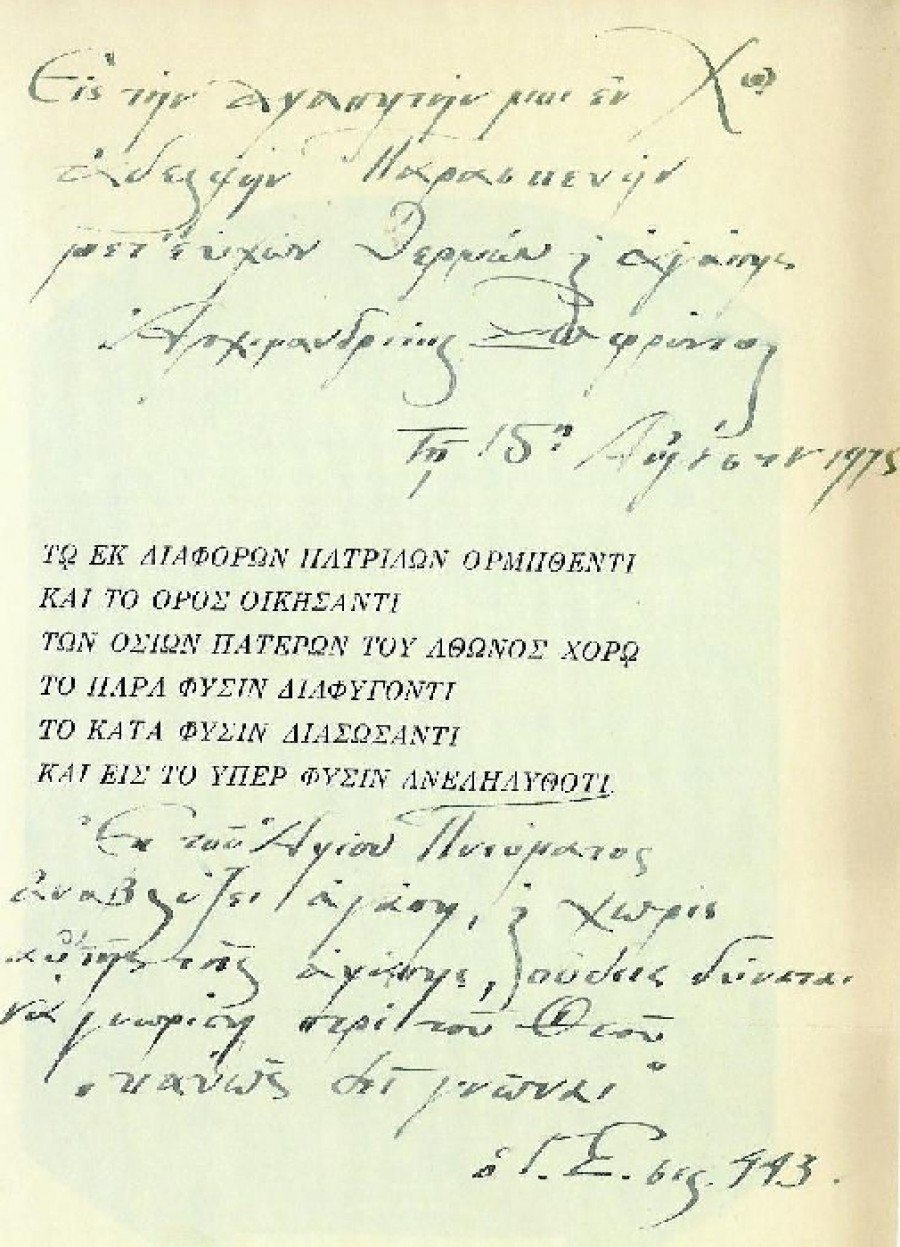 Εἰς τὴν ἀγαπητήν μου ἐν Χῷ
ἀδελφὴν Παρασκευὴν
μετ' εὐχῶν θερμῶν ϗ ἀγάπης
Ἀρχιμανδρίτης Σωφρόνιος
Τῇ 15ῃ Αὐγούστου 1975
Τῼ ΕΚ ΔΙΑΦΟΡΩΝ ΠΑΤΡΙΔΩΝ ΟΡΜΗΘΕΝΤΙ
ΚΑΙ ΤΟ ΟΡΟΣ ΟΙΚΗΣΑΝΤΙ
ΤΩΝ ΟΣΙΩΝ ΠΑΤΕΡΩΝ ΤΟΥ ΑΘΩΝΟΣ ΧΟΡῼ
ΤΟ ΠΑΡΑ ΦΥΣΙΝ ΔΙΑΦΥΓΟΝΤΙ
ΤΟ ΚΑΤΑ ΦΥΣΙΝ ΔΙΑΣΩΣΑΝΤΙ
ΚΑΙ ΕΙΣ ΤΟ ΥΠΕΡ ΦΥΣΙΝ ΑΝΕΛΗΛΥΘΟΤΙ.
Ἐκ τοῦ Ἁγίου Πνεύματος
ἀναβλύζει ἀγάπη, ϗ χωρὶς
αὐτῆς τῆς ἀγάπης, οὐδεὶς δύναται
νὰ γνωρίσῃ περὶ τοῦ Θεοῦ
"καθὼς δεῖ γνῶναι"
ὁ Γ. Σ. σελ. 443.